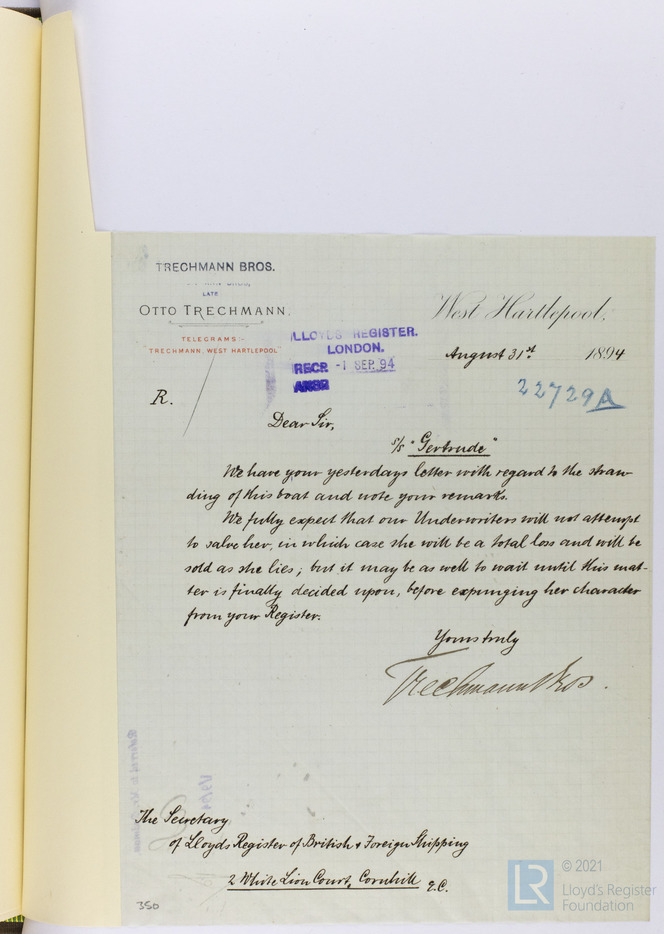 TRECHMANN BROS.
LATE
OTTO TRECHMANN.
TELEGRAMS:-
"TRECHMANN, WEST HARTLEPOOL"
LLOYD'S REGISTER.
LONDON.
RECD. -1 SEP. 94
ANSD
West Hartlepool,
August 31st. 1894
22729A
R.
Dear Sir,
s/s "Gertrude"
We have your yesterdays letter with regard to the stran-
ding of this boat and note your remarks.
We fully expect that our Underwriters will not attempt
to salve her, in which case she will be a total loss and will be
sold as she lies; but it may be as well to wait until this mat-
ter is finally decided upon, before expunging her character
from your Register.
Yours truly
Trechmann Bros.
The Secretary
of Lloyds Register of British & Foreign Shipping
2 White Lion Court, Cornhill E.C.
350
LR
© 2021
Lloyd's Register
Foundation